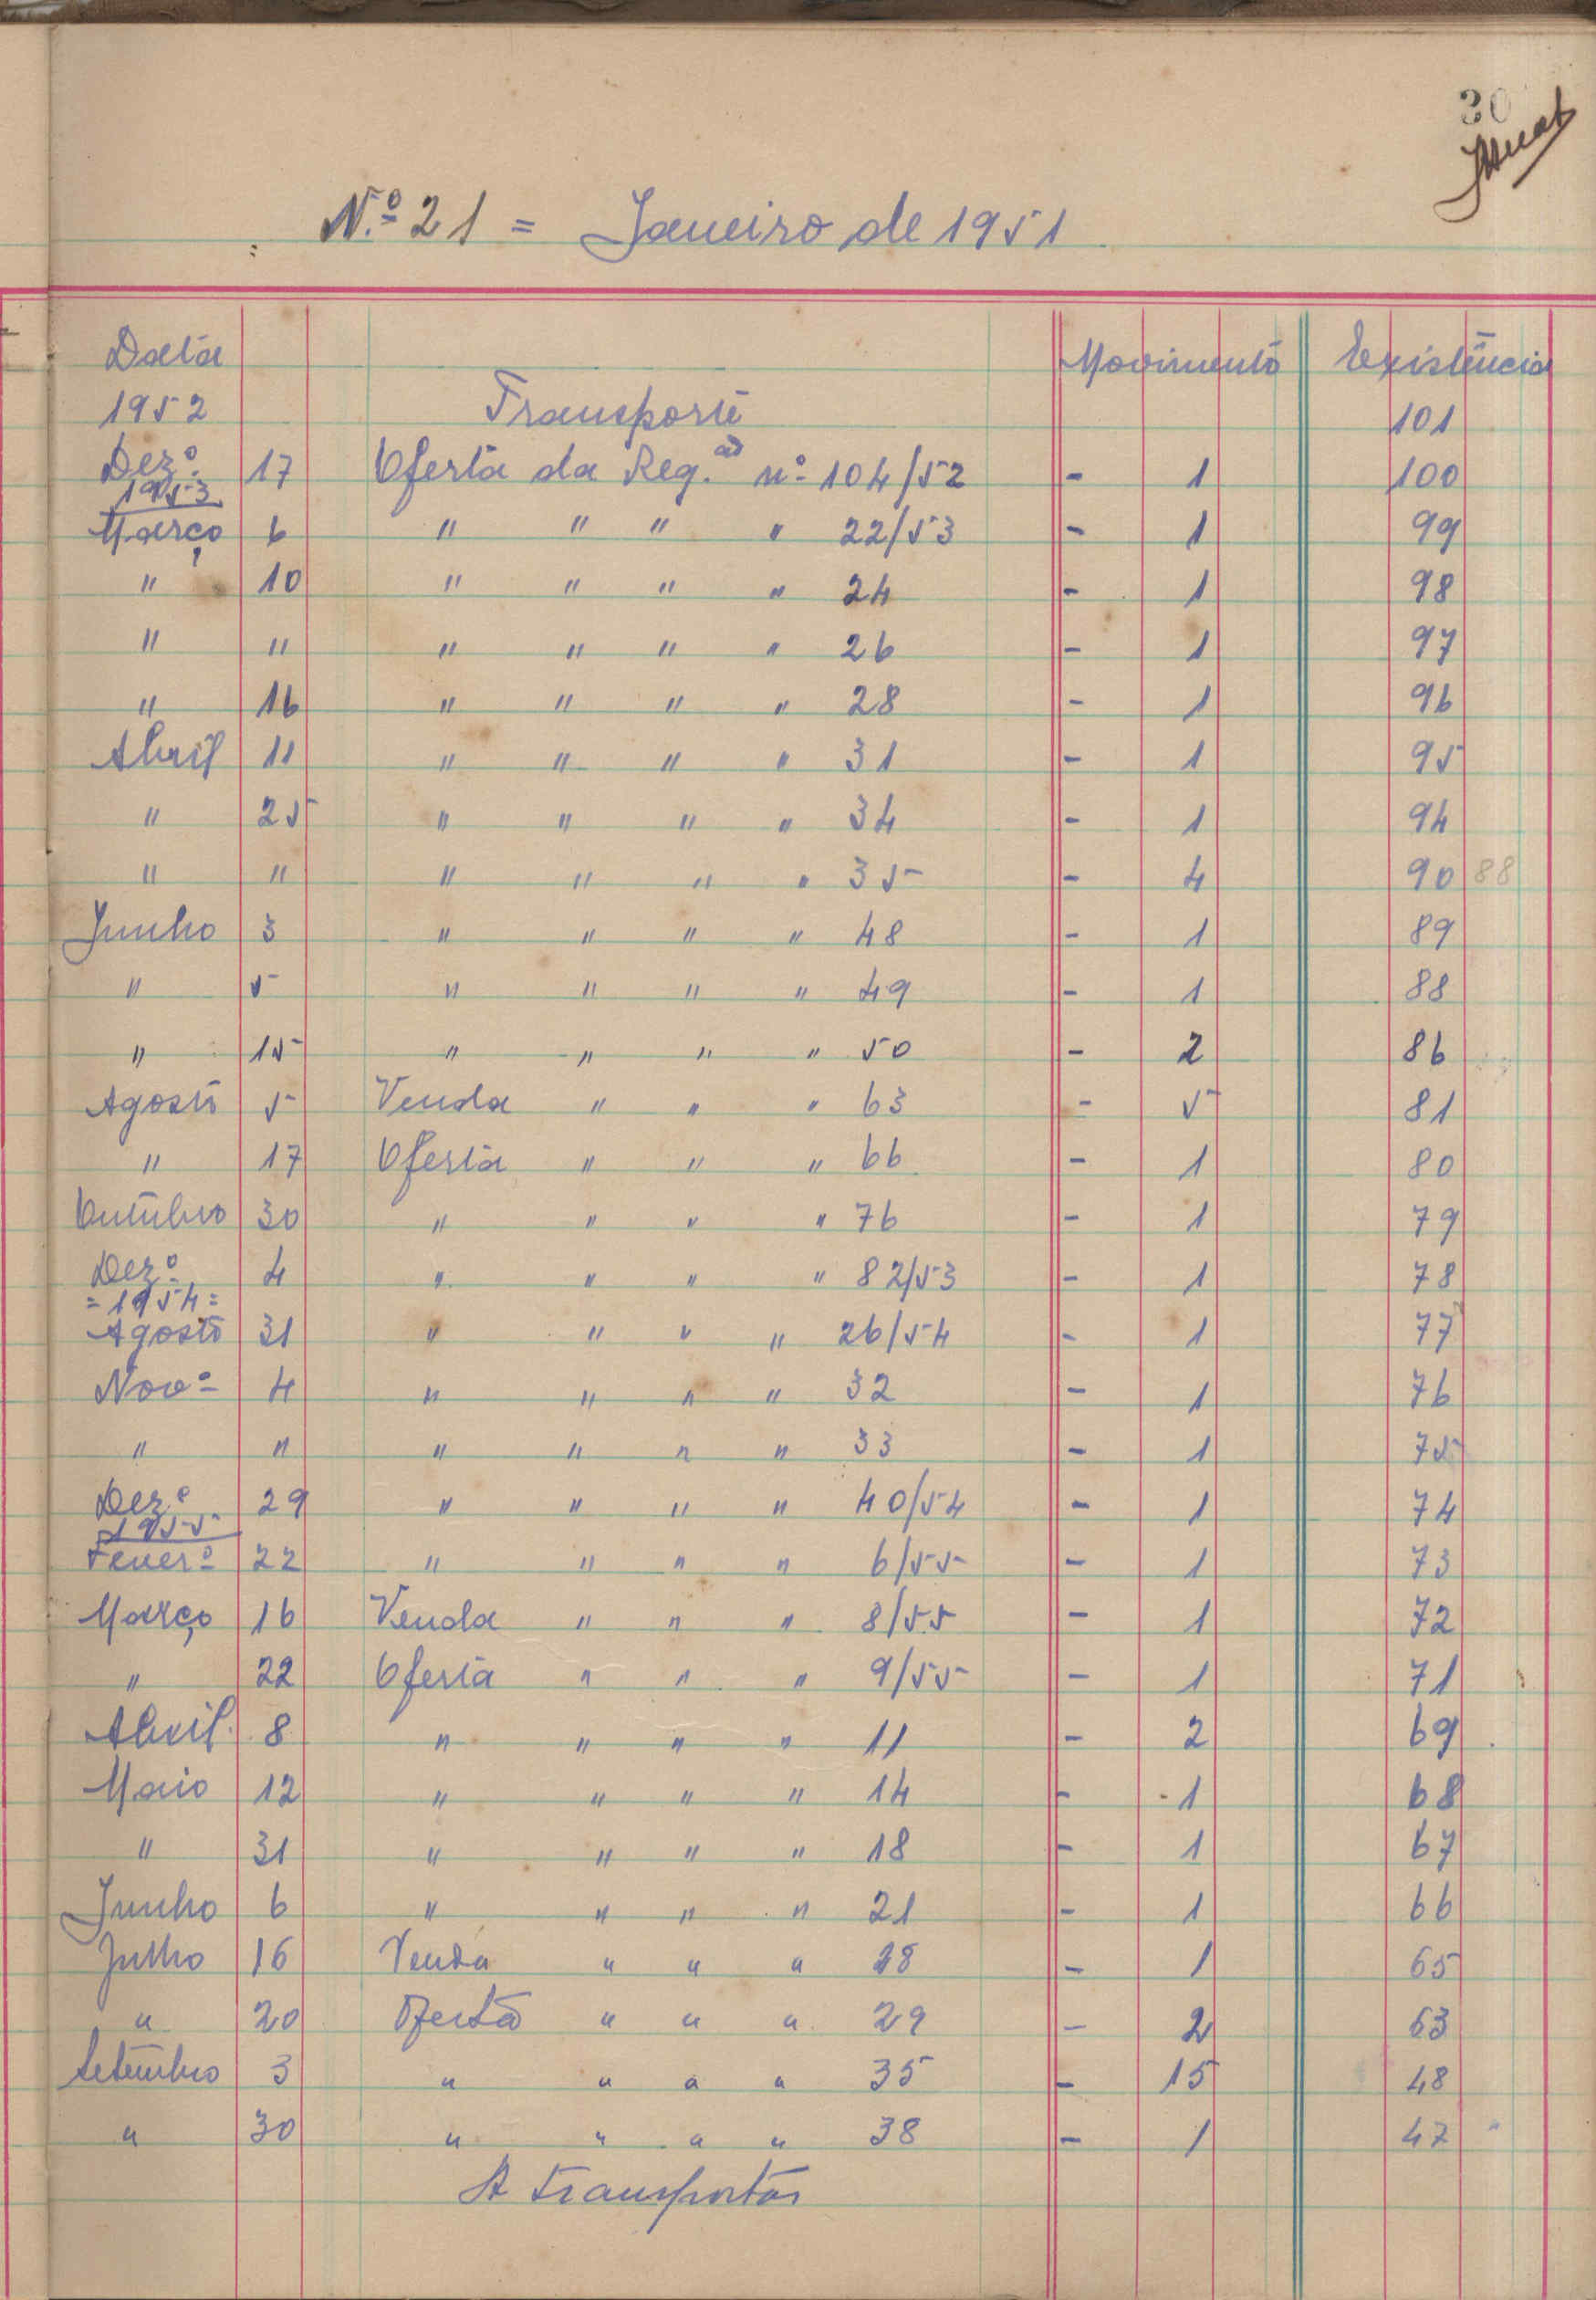 30
N.º 21 = Janeiro de 1951
Data Movimento Existência
1952 Transporte 101
Dezº 17 Oferta da Reg.ão nº 104/52 - 1 100
1953
Março 6 " " " " 22/53 - 1 99
" 10 " " " " 24 - 1 98
" " " " " " 26 - 1 97
" 16 " " " " 28 - 1 96
Abril 11 " " " " 31 - 1 95
" 25 " " " " 34 - 1 94
" " " " " " 35 - 4 90 88
Junho 3 " " " " 48 - 1 89
" 5 " " " " 49 - 1 88
" 15 " " " " 50 - 2 86
Agosto 5 Venda " " " 63 - 5 81
" 17 Oferta " " " 66 - 1 80
Outubro 30 " " " " 76 - 1 79
Dezº 4 " " " " 82/53 - 1 78
=1954=
Agosto 31 " " " " 26/54 - 1 77
Novº 4 " " " " 32 - 1 76
" " " " " " 33 - 1 75
Dezº 29 " " " " 40/54 - 1 74
1955
Feverº 22 " " " " 6/55 - 1 73
Março 16 Venda " " " 8/55 - 1 72
" 22 Oferta " " " 9/55 - 1 71
Abril 8 " " " " 11 - 2 69
Maio 12 " " " " 14 - 1 68
" 31 " " " " 18 - 1 67
Junho 6 " " " " 21 - 1 66
Julho 16 Venda " " " 28 - 1 65
" 20 Oferta " " " 29 - 2 63
Setembro 3 " " " " 35 - 15 48
" 30 " " " " 38 - 1 47
A transportar